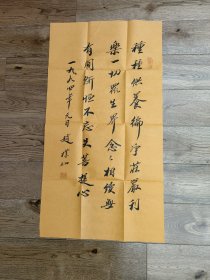 種種供養淨莊嚴利
樂一切眾生界念〻相續無
有間斷恆不忘失菩提心
一九四年元日 趙樸初